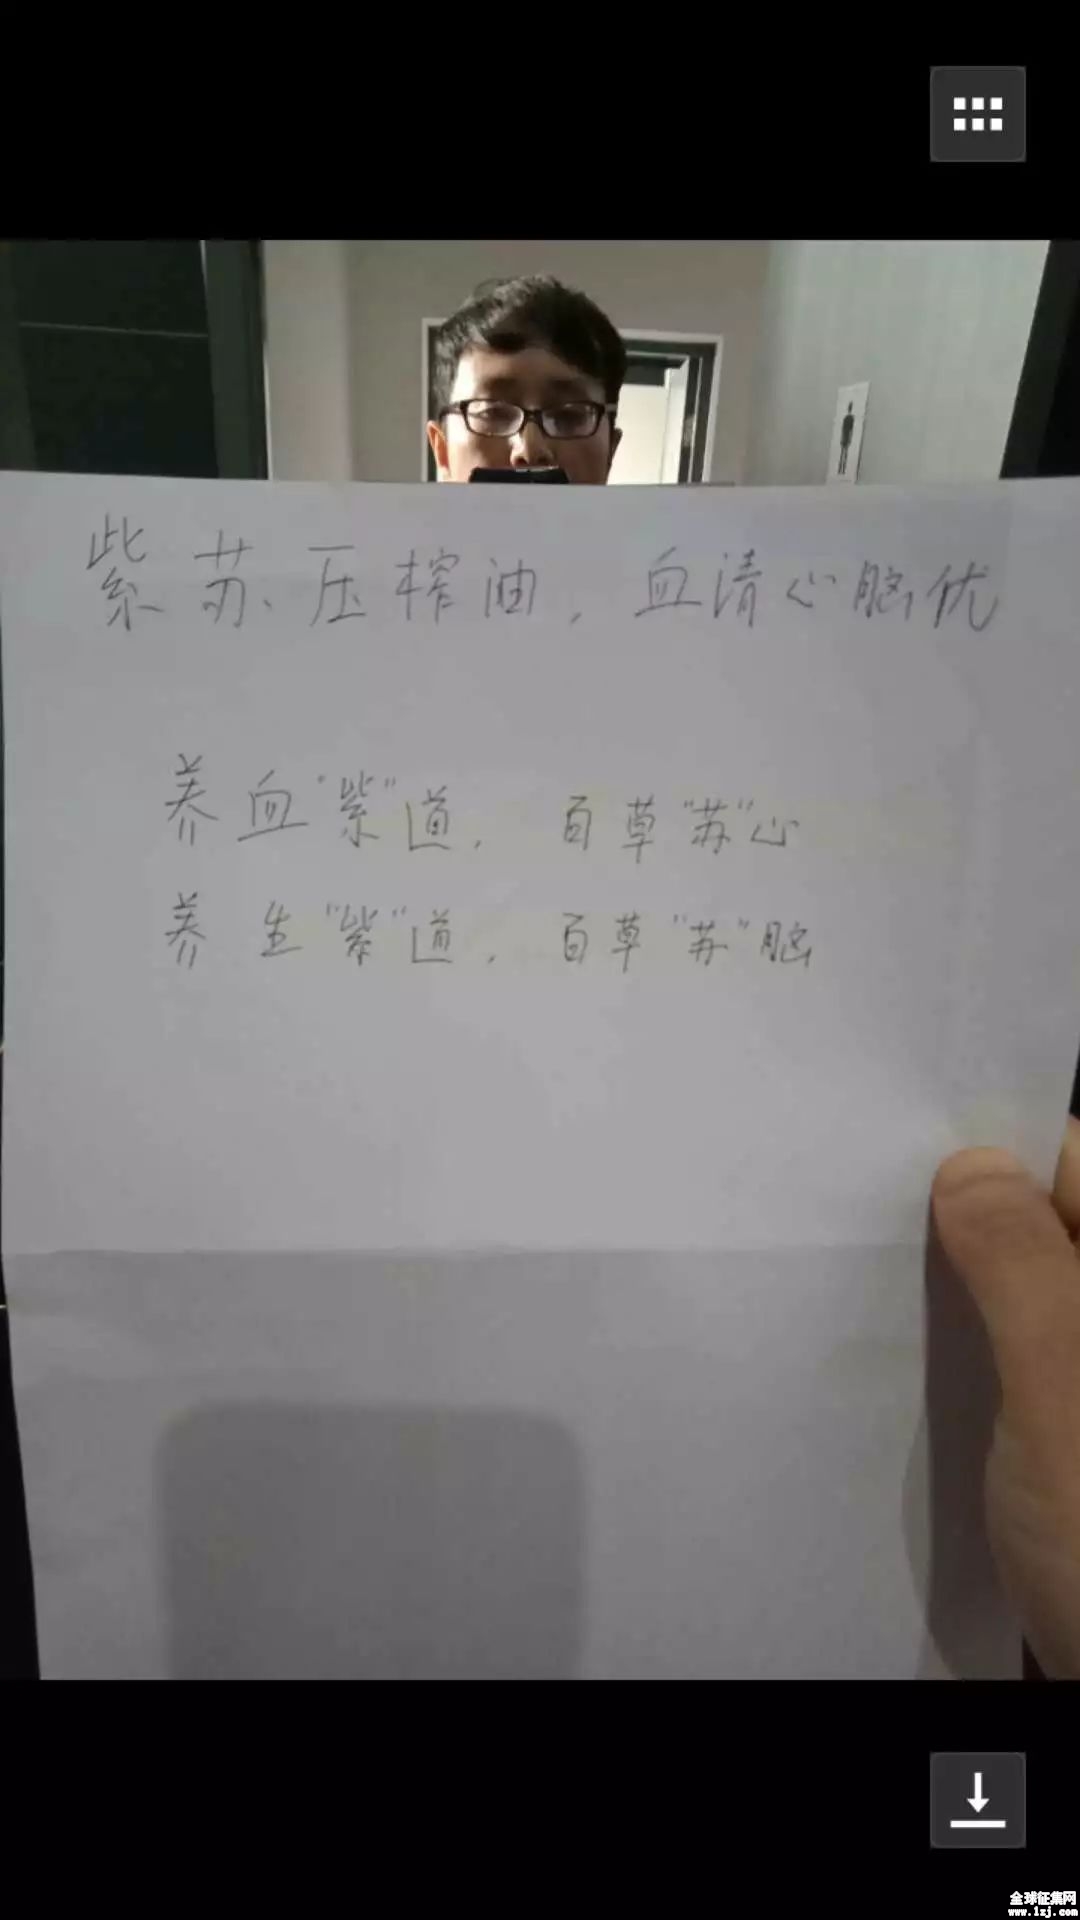 紫苏压榨油，血清心脑优
养血“紫”道，百草“苏”心
养生“紫”道，百草“苏”脑
全球征集网
www.1zj.com